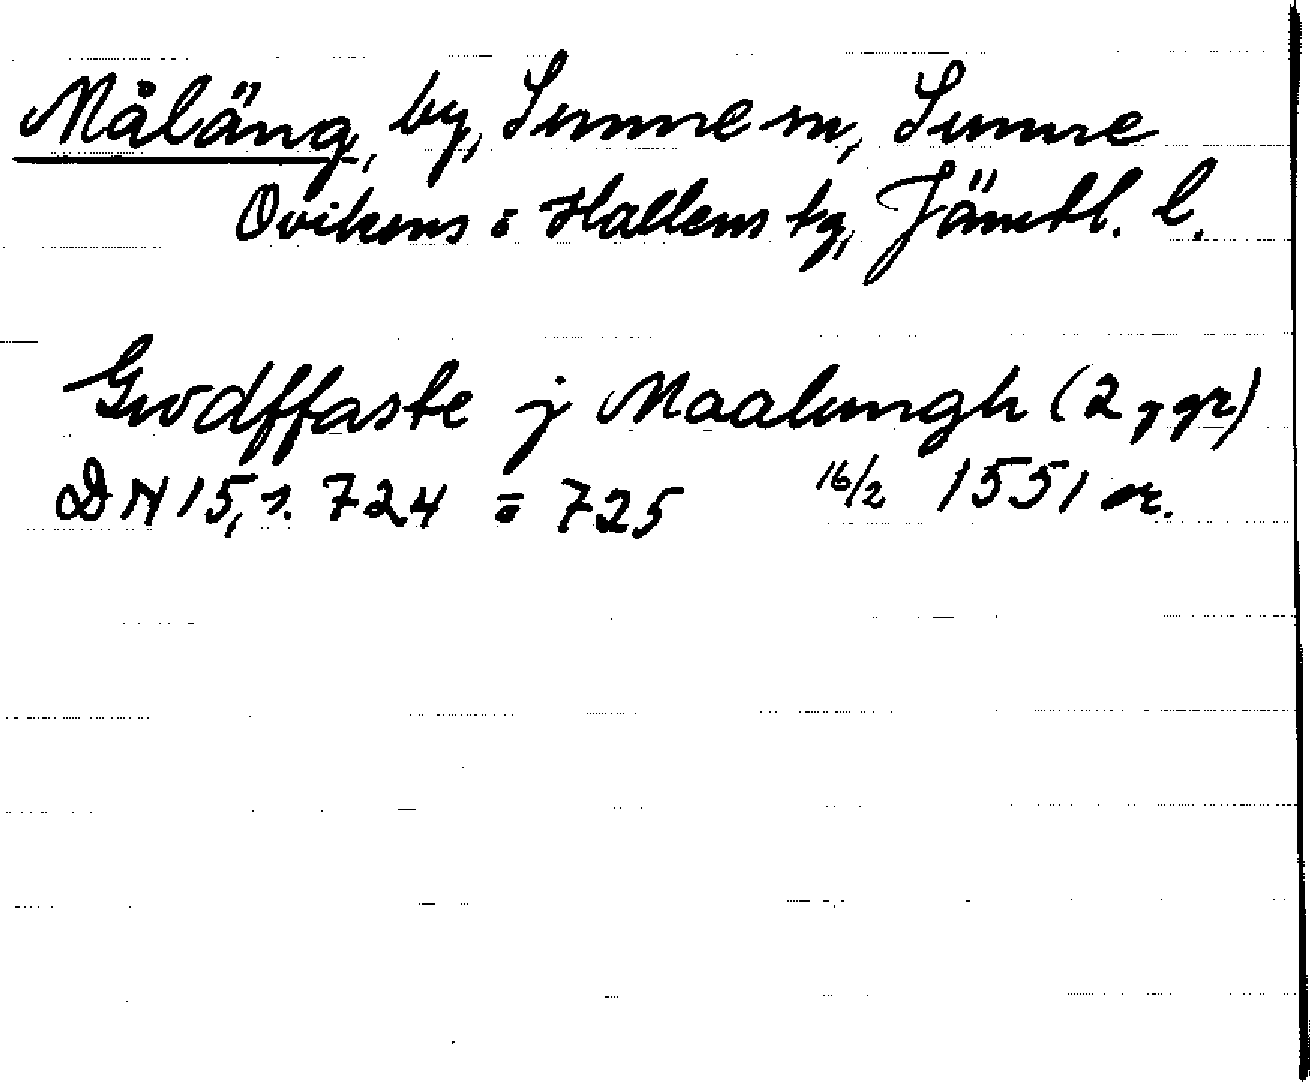 Måläng, by, Sunne sn, Sunne
Ovikens o Hallens tg, Jämtl. l.
Gwdffaste j Maalungh (2 ggr)
DN 15, s. 724 o 725 16/2 1551 or.